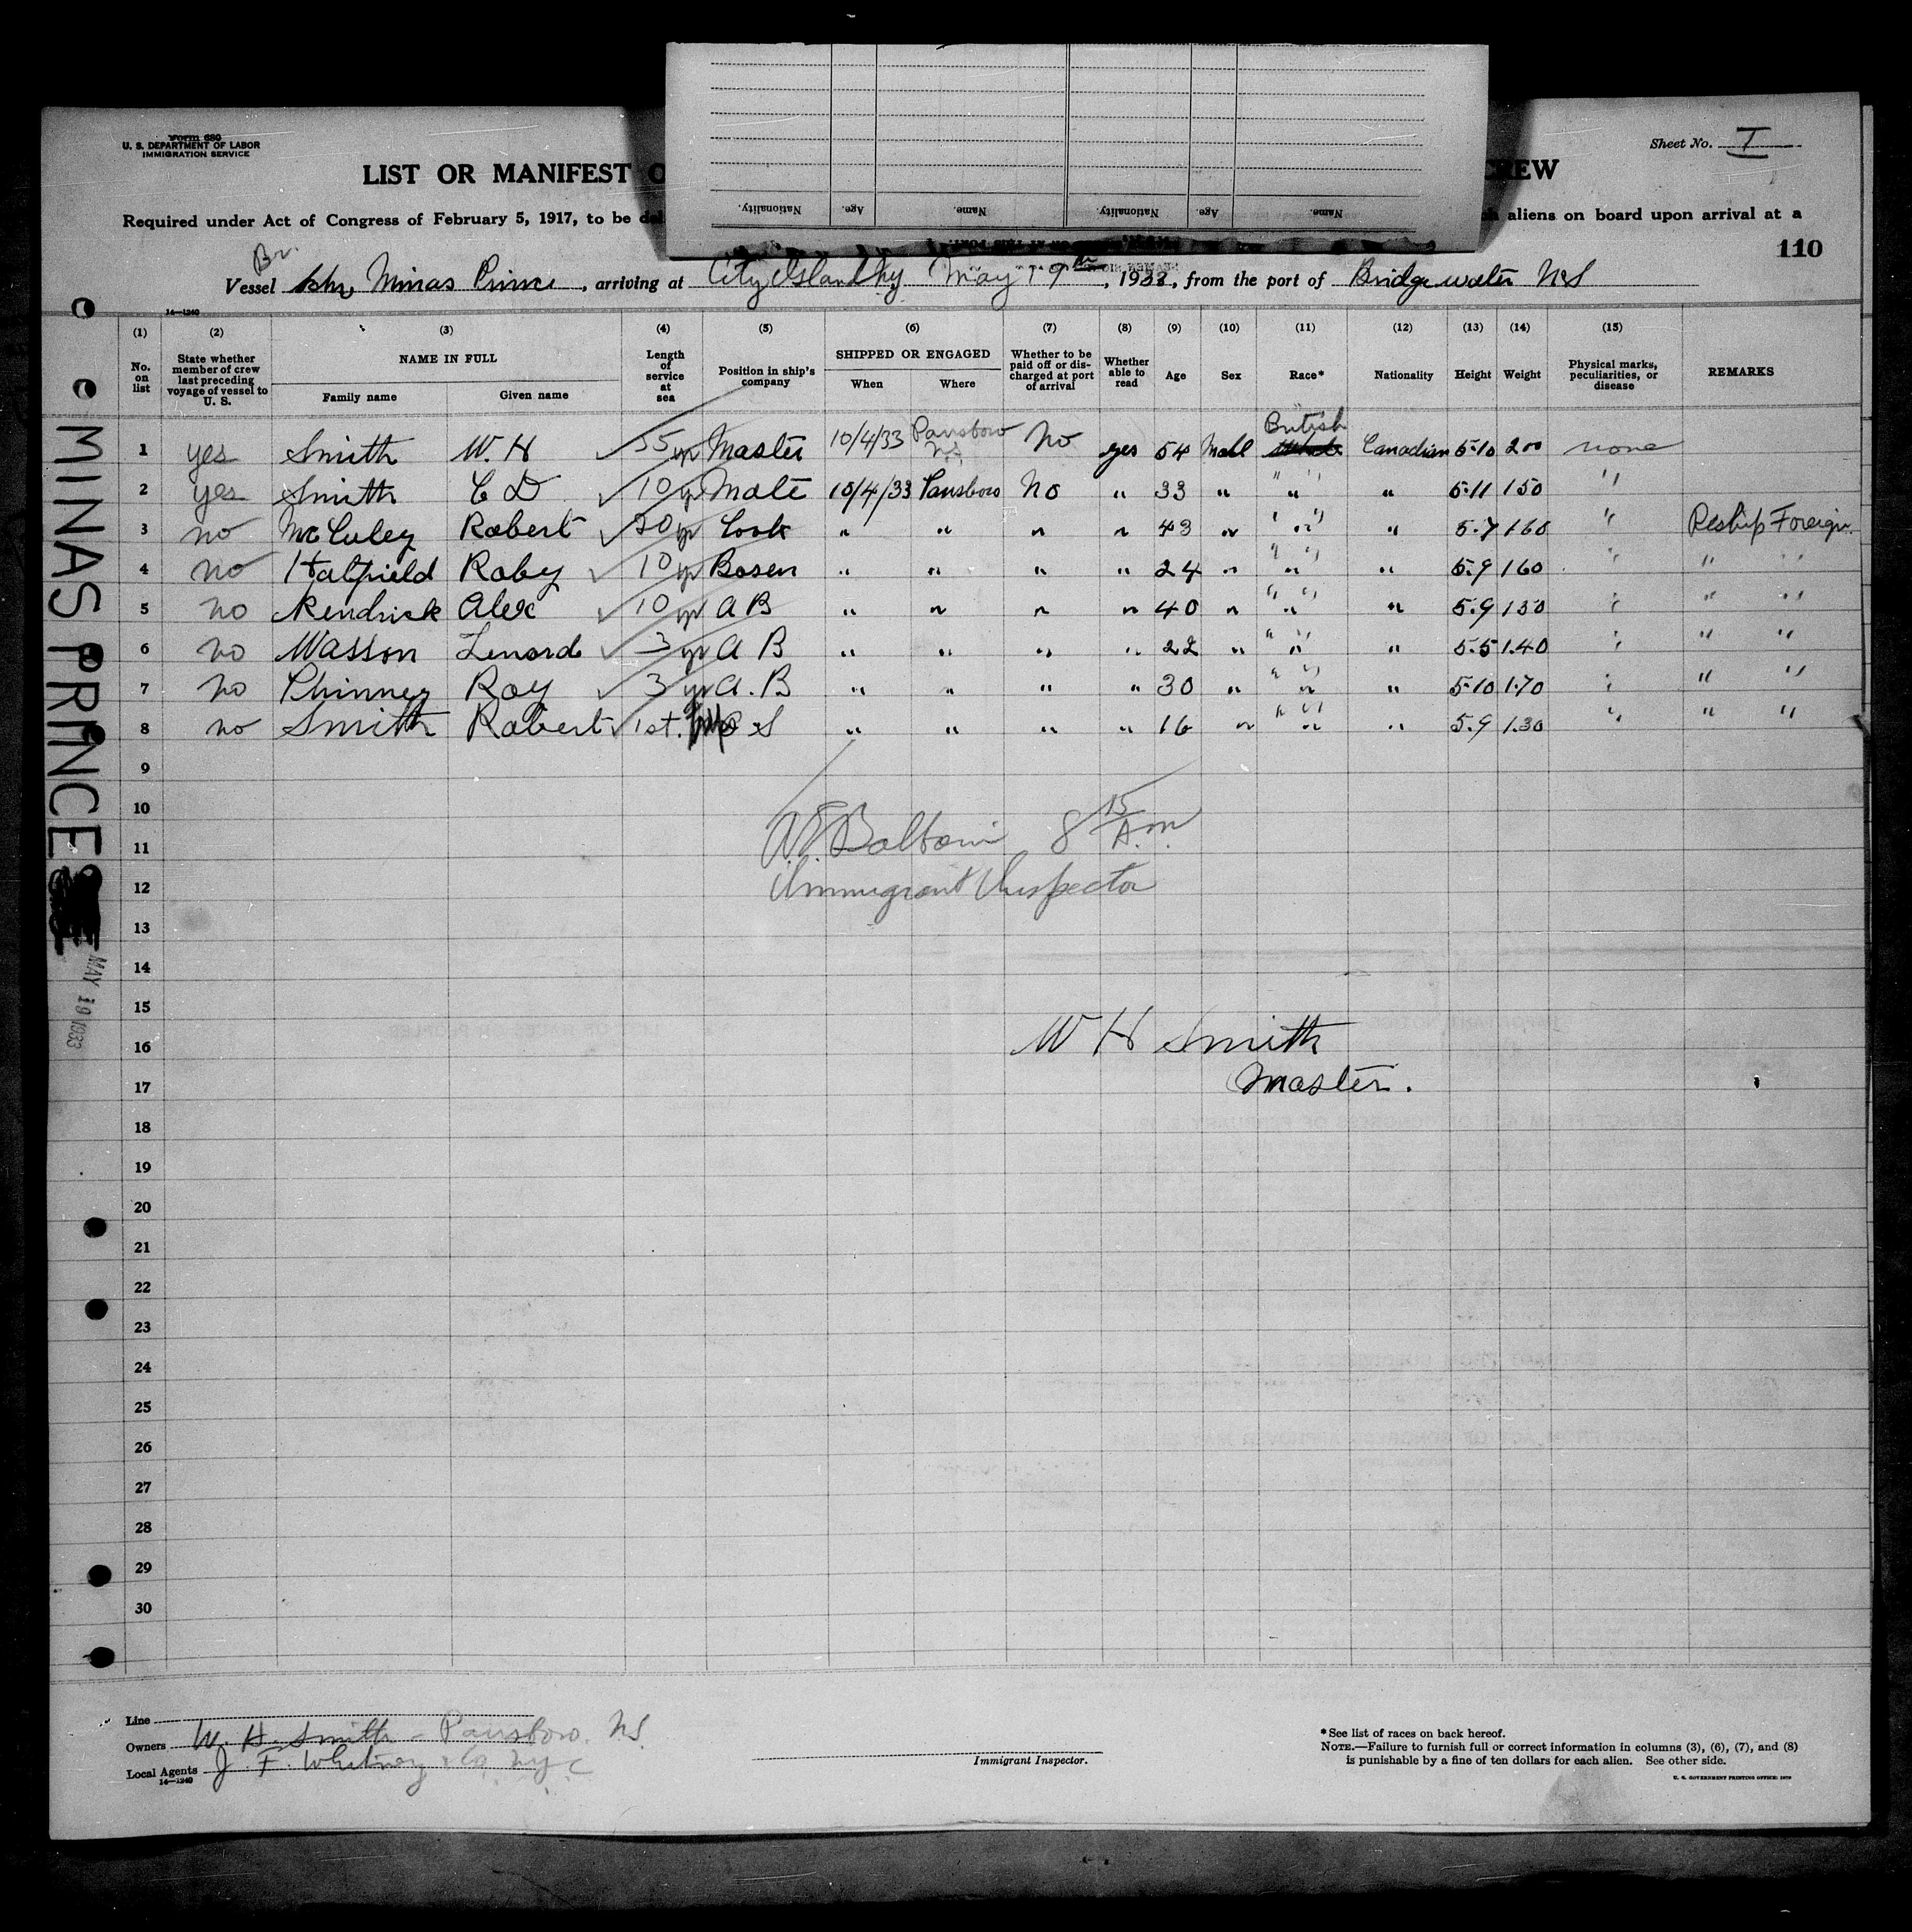 Form 680
U. S. DEPARTMENT OF LABOR
IMMIGRATION SERVICE
Sheet No. I
LIST OR MANIFEST O
CREW
Required under Act of Congress of February 5, 1917, to be del
aliens on board upon arrival at a
110
Nationality. Age. Name. Nationality. Age. Name.
Br.
Vessel Schr Minas Prince, arriving at City Island Ny May 19th, 1933, from the port of Bridgewater N.S
14—1240
(1) (2) (3) (4) (5) (6) (7) (8) (9) (10) (11) (12) (13) (14) (15)
No. on list
State whether member of crew last preceding voyage of vessel to U. S.
NAME IN FULL
Family name Given name
Length of service at sea
Position in ship's company
SHIPPED OR ENGAGED
When Where
Whether to be paid off or discharged at port of arrival
Whether able to read
Age Sex Race* Nationality Height Weight
Physical marks, peculiarities, or disease
REMARKS
British
1 yes Smith W. H 35 yr Master 10/4/33 Parrsboro N.S. No yes 54 Male White Canadian 5.10 200 none
2 yes Smith C D 10 yr Mate 10/4/33 Parrsboro No " 33 " " " 5.11 150 "
3 no McCuley Robert 20 yr Cook " " " " 43 " " " 5.7 160 " Reship Foreign
4 no Hatfield Roby 10 yr Bosen " " " " 24 " " " 5.9 160 " " "
5 no Kendrick Alex 10 yr A B " " " " 40 " " " 5.9 150 " " "
6 no Wasson Lenord 3 yr A B " " " " 22 " " " 5.5 1.40 " " "
7 no Phinney Roy 3 yr A. B " " " " 30 " " " 5.10 1.70 " " "
8 no Smith Robert 1st. O S " " " " 16 " " " 5.9 1.30 " " "
9
10
11
12
13
14
15
16
17
18
19
20
21
22
23
24
25
26
27
28
29
30
A. E. Baldwin 8 15 A.m.
Immigrant Inspector
W H Smith
Master.
MINAS PRINCE
MAY 19 1933
Line
Owners W. H. Smith - Parrsboro. N.S.
Local Agents J. F. Whitney & Co. N.Y.C
14—1240
Immigrant Inspector.
*See list of races on back hereof.
NOTE.—Failure to furnish full or correct information in columns (3), (6), (7), and (8)
is punishable by a fine of ten dollars for each alien. See other side.
U. S. GOVERNMENT PRINTING OFFICE: